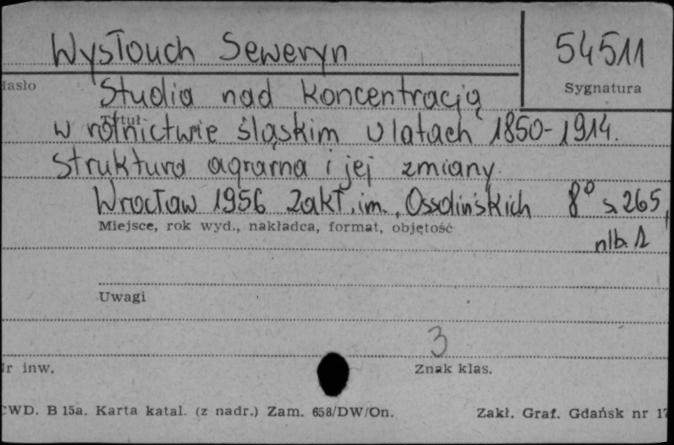 Wysłouch Seweryn
54511
Hasło
Sygnatura
Studia nad koncentracją
Tytuł
w rolnictwie śląskim w latach 1850-1914.
Struktura agrarna i jej zmiany.
Wrocław 1956 Zakł. im. Ossolińskich 8° s. 265,
Miejsce, rok wyd., nakładca, format, objętość
nlb. 1
Uwagi
3
Nr inw.
Znak klas.
CWD. B 15a. Karta katal. (z nadr.) Zam. 658/DW/On.
Zakł. Graf. Gdańsk nr 17